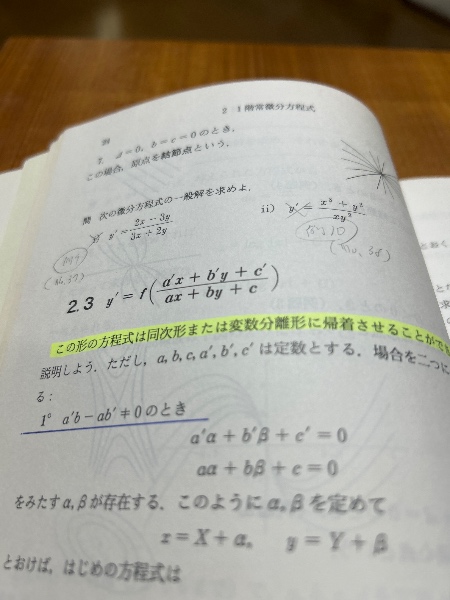 2 1階常微分方程式
7. a=0, b=c≠0のとき.
この場合, 原点を結節点という.
問 次の微分方程式の一般解を求めよ.
i) y' = (2x−3y)/(3x+2y) ii) y' = (x³+y³)/(xy²)
2.3 y' = f((a'x+b'y+c')/(ax+by+c))
この形の方程式は同次形または変数分離形に帰着させることができ
説明しよう. ただし, a, b, c, a', b', c' は定数とする. 場合を二つに
る:
1° a'b−ab'≠0のとき
a'α + b'β + c' = 0
aα + bβ + c = 0
をみたすα, βが存在する. このようにα, βを定めて
x = X + α, y = Y + β
とおけば, はじめの方程式は